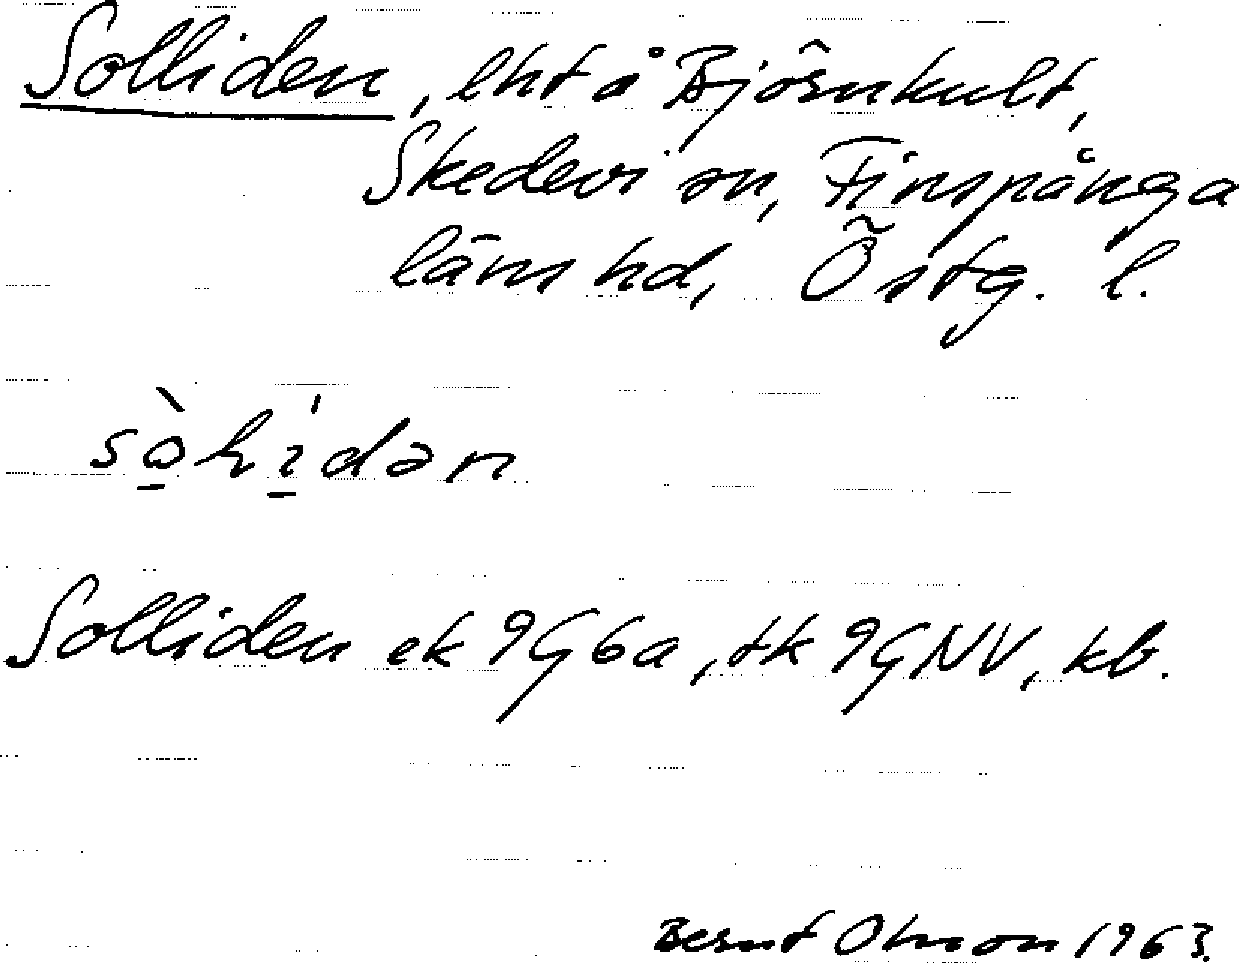 Solliden, lht å Björnhult,
Skedevi sn, Finspånga
läns hd, Östg. l.
sò̱lí̱dən
Solliden ek 9G6a, tk 9GNV, kb.
Bernt Olsson 1963.